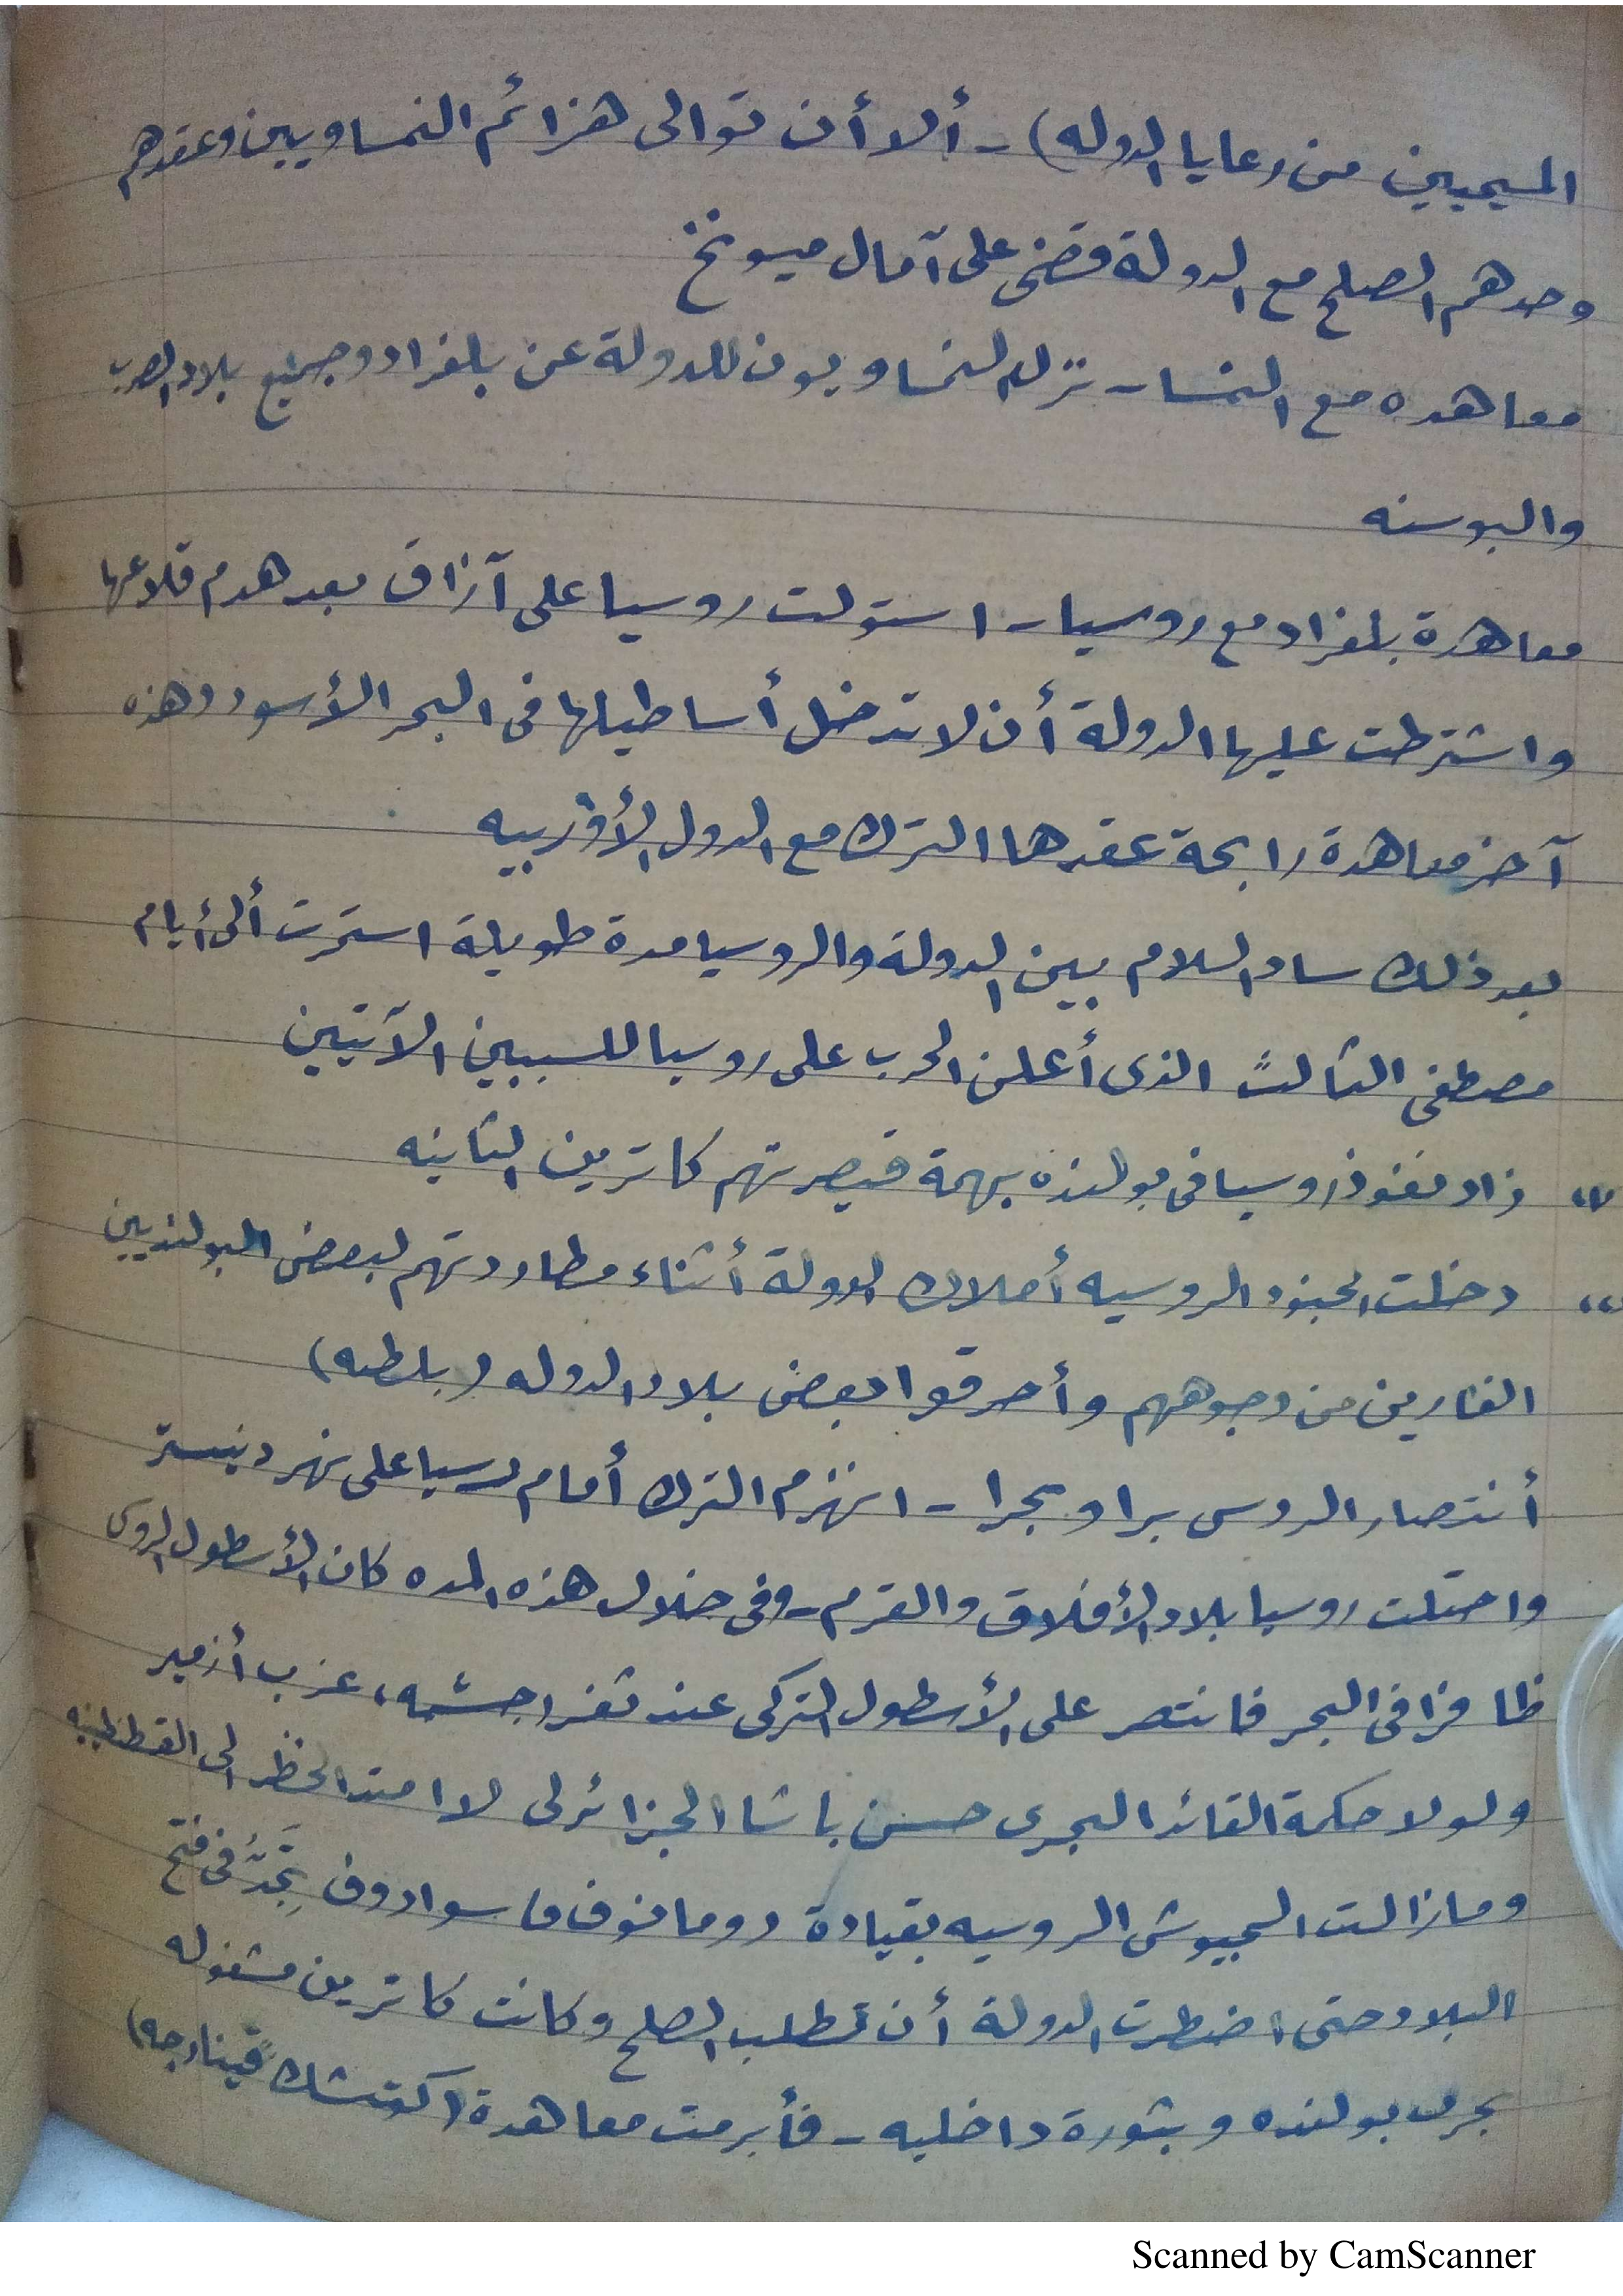 المسيحيين من رعايا الدوله) - ألا أن توالى هزائم النمساويين وعقدهم
وحدهم الصلح مع الدولة قضى على آمال ميونخ
معاهده مع النمسا - نزل النمساويون للدولة عن بلغراد وجميع بلاد الصرب
والبوسنه
معاهدة بلغراد مع روسيا - استولت روسيا على آزاق بعد هدم قلاعها
واشترطت عليها الدولة أن لا تدخل أساطيلها فى البحر الأسود وهذه
آخر معاهدة رابحة عقدها الترك مع الدول الأوربيه
بعد ذلك ساد السلام بين الدولة والروسيا مدة طويلة استمرت ألى أيام
مصطفى الثالث الذى أعلن الحرب على روسيا للسببين الآتيين
"١ زاد نفوذ روسيا فى بولنده بهمة قيصرتهم كاترين الثانيه
"٢ دخلت الجنود الروسيه أملاك الدولة أثناء مطاردتهم لبعض البولنديين
الفارين من وجوههم وأحرقوا بعض بلاد الدوله (بلطه)
أنتصار الروس برا وبحرا - انهزم الترك أمام رسيا على نهر دنيستر
واحتلت روسيا بلاد الأفلاق والقرم - وفى خلال هذه المده كان الأسطول الروسى
ظافرا فى البحر فانتصر على الأسطول التركى عند ثغر (جشمه، غرب أزمير
ولولا حكمة القائد البحرى حسن باشا الجزائرلى لا امتد الخطر الى القسطنطينيه
ومازالت الجيوش الروسيه بقيادة رومانوف فا سوادوف تجد فى فتح
البلاد حتى اضطرت الدولة أن تطلب الصلح وكانت كاترين مشغوله
بحرب بولنده وبثورة داخليه - فأبرمت معاهدة (كوتشك قينارجه)
Scanned by CamScanner